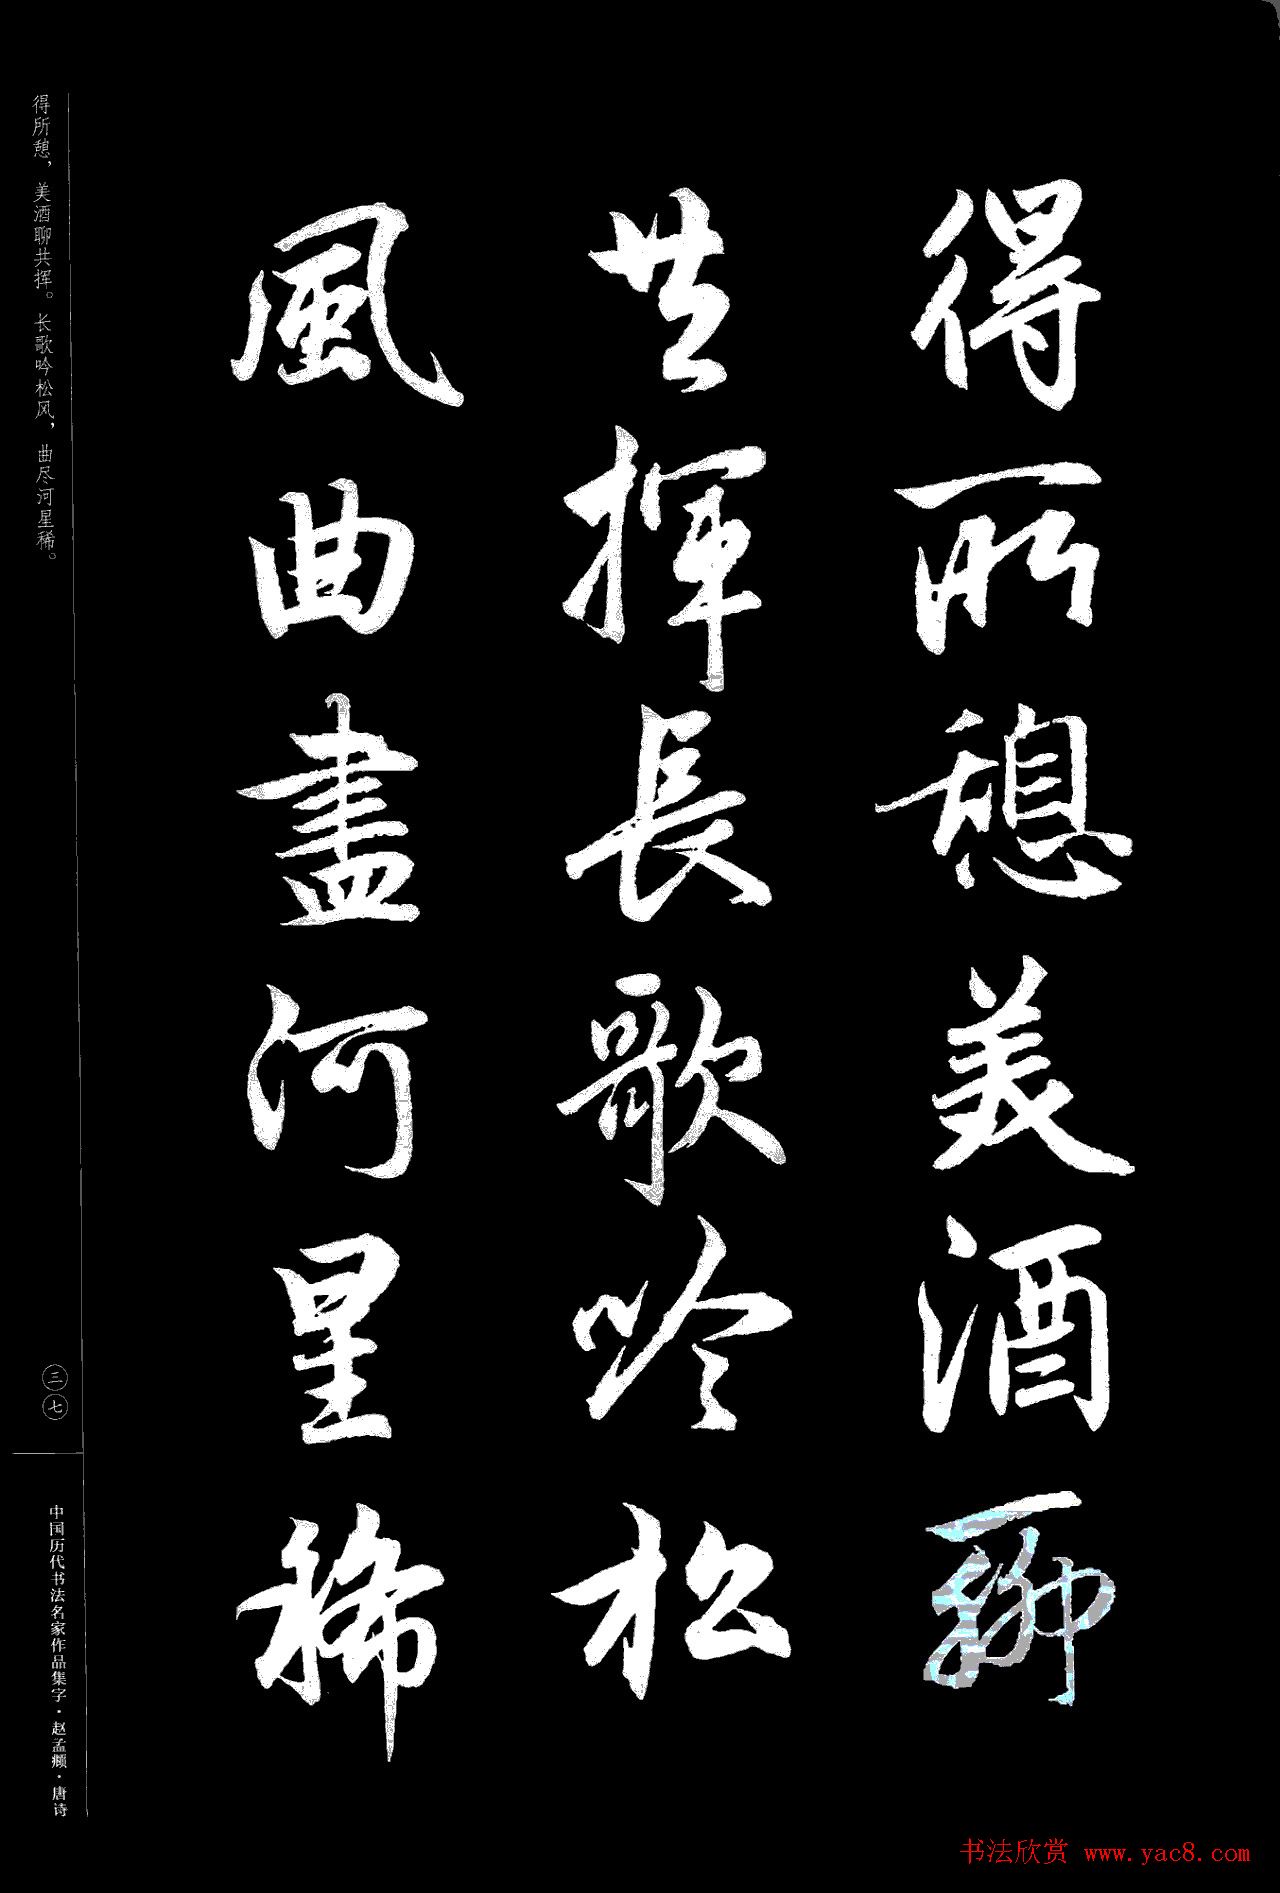 得所憩美酒聊
共揮長歌吟松
風曲盡河星稀
得所憩，美酒聊共挥。长歌吟松风，曲尽河星稀。
三七
中国历代书法名家作品集字·赵孟頫·唐诗
书法欣赏 www.yac8.com